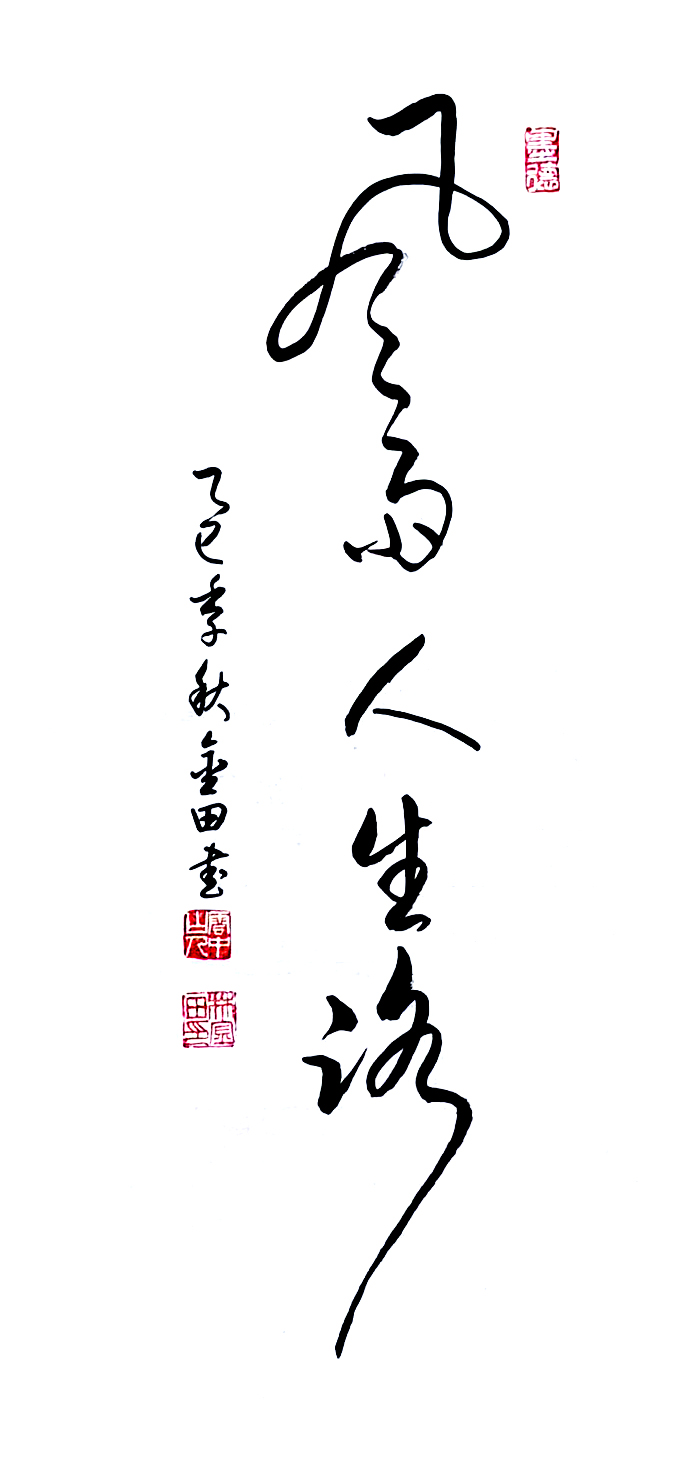 风雨人生路
乙巳季秋金田书